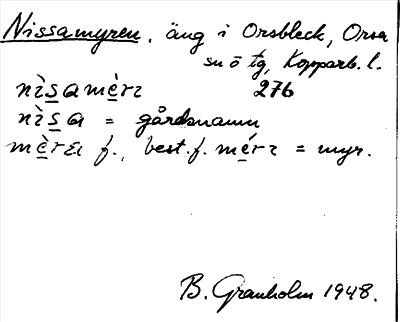 Nissamyren, äng i Orsbleck, Orsa
sn o tg, Kopparb. l.
nìsamèrɪ 276
nìsa = gårdsnamn
mèrɪ f., best. f. mérɪ = myr.
B. Granholm 1948.